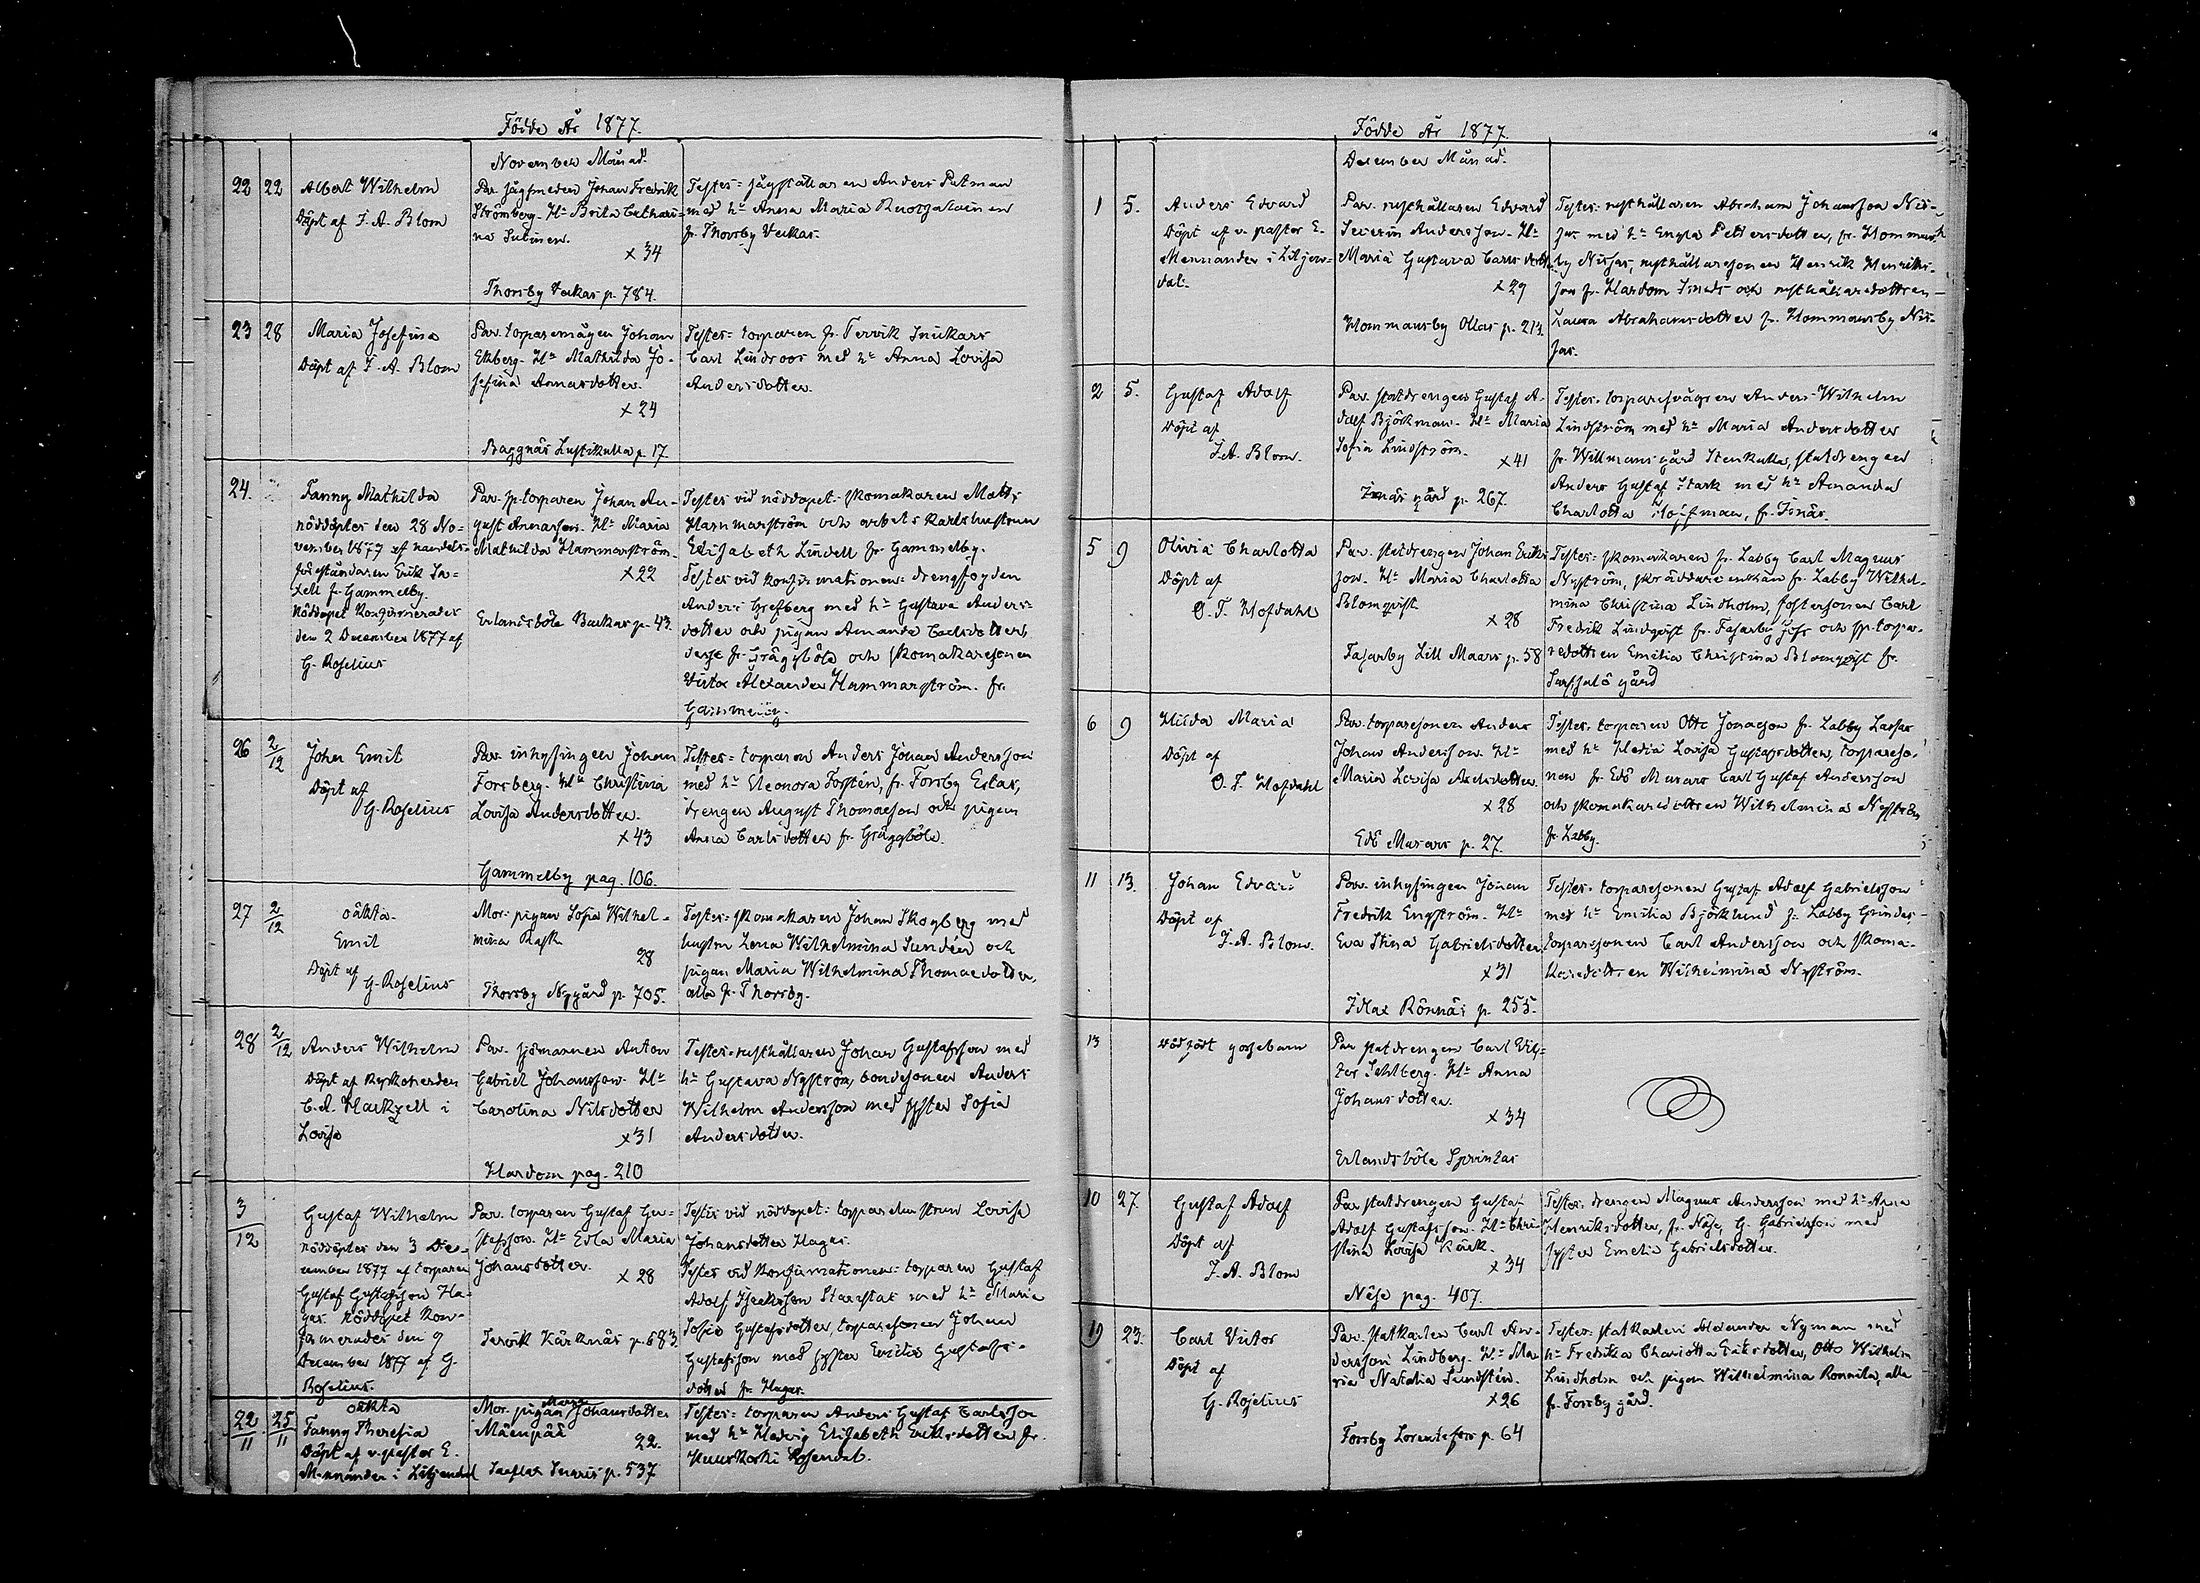 Födde År 1877.
November Månad.
22 22 Albert Wilhelm
Döpt af J. A. Blom
Par. sågsmeden Johan Fredrik
Strömberg. H:u Brita Cathari-
na Lubinen.
x 34
Thorsby Veckas p. 784.
Testes: sågställaren Anders Putman
med h:u Anna Maria Ruotsalainen
fr. Thorsby Veckas.
23 28 Maria Josefina
Döpt af J. A. Blom
Par. torparemågen Johan
Ekberg. H:u Mathilda Jo-
sefina Annasdotter.
x 24
Baggnäs Lustikulla p. 17.
Testes: torparen fr. Tervik Snickars
Carl Lindroos med h:u Anna Lovisa
Andersdotter.
24. Fanny Mathilda
nöddöptes den 28 No-
vember 1877 af handels-
föreståndaren Erik
fr. Gammelby.
Nöddopet konfirmerades
den 2 December 1877 af
G. Roselius
Par. sp. torparen Johan Au-
gust Annasson. H:u Maria
Mathilda Hammarström.
x 22
Erlandsböle Backas p. 43.
Testes vid nöddopet: skomakaren Matts
Hammarström och arbetskarlshustrun
Elisabeth Lindell fr. Gammelby.
Testes vid konfirmationen: drengfogden
Anders Grefberg med h:u Gustava Anders-
dotter och pigan Amanda Carlsdotter,
desse fr. Gräggböle och skomakaresonen
Victor Alexander Hammarström fr.
Gammelby.
26 2/12 John Emil
Döpt af
G. Roselius
Par. inhysingen Johan
Forsberg. H:u Christina
Lovisa Andersdotter.
x 43
Gammelby pag. 106.
Testes: torparen Anders Johan Andersson
med h:u Eleonora Forstén, fr. Forsby Eslar,
drengen August Thomasson och pigan
Anna Carlsdotter fr. Gräggböle.
27 2/12 oäkta
Emil
Döpt af
G. Roselius
Mor. pigan Sofia Wilhel-
mina Rask
28
Thorsby Nygård p. 705.
Testes: skomakaren Johan Skogberg med
hustru Lena Wilhelmina Sundén och
pigan Maria Wilhelmina Thomasdotter,
alla fr. Thorsby.
28 2/12 Anders Wilhelm
Döpt af Kyrkoherden
C. A. Harkzell i
Lovisa
Par. sjömannen Anton
Gabriel Johansson. H:u
Carolina Nilsdotter
x 31
Hardom pag. 210
Testes: rusthållaren Johan Gustafsson med
h:u Gustava Nyström, bondesonen Anders
Wilhelm Andersson med syster Sofia
Andersdotter.
3/12 Gustaf Wilhelm
nöddöptes den 3 Dec-
cember 1877 af torparen
Gustaf Gustafsson Ha-
gas. Nöddopet kon-
firmerades den 9
December 1877 af G.
Roselius.
Par. torparen Gustaf Gu-
stafsson. H:u Edla Maria
Johansdotter.
x 28
Tervik Kärknäs p. 683.
Testes vid nöddopet: torparehustrun Lovisa
Johansdotter Hagas.
Testes vid konfirmationen: torparen Gustaf
Adolf Isacksson med h:u Maria
Sofia Gustafsdotter, torparesonen Johan
Gustafsson med syster Emilia Gustafs-
dotter fr. Hagas.
22/11 25/11 oäkta
Fanny Theresia
Döpt af v. pastor E.
Mennander i Liljendal
Mor. pigan Maria Johansdotter
Mäenpää
22.
p. 537
Testes: torparen Anders Gustaf Carlsson
med h:u Hedvig Elisabeth Eriksdotter fr.
Kuuskoski Rosendal.
Födde År 1877.
December Månad.
1 5. Anders Edvard
Döpt af v. pastor E.
Mennander i Liljen-
dal.
Par. rusthållaren Edvard
Severin Andersson. H:u
Maria Gustava Carlsdotter
x 29
Hommansby Ollas p. 213.
Testes: rusthållaren Abraham Johansson Nis-
sas med h:u Engla Pettersdotter, fr. Hommans-
by Nissas, rusthållaresonen Henrik Henriks-
son fr. Hardom Smeds och rusthållaredottren
Laura Abrahamsdotter fr. Hommansby Nis-
sas.
2 5. Gustaf Adolf
Döpt af
J. A. Blom.
Par. statdrengen Gustaf A-
dolf Björkman. H:u Maria
Sofia Lindström.
x 41
gård p. 267.
Testes: torparesvågren Anders Wilhelm
Lindström med h:u Maria Andersdotter
fr. Willmansgård Stenkulla, statdrengen
Anders Gustaf Stark med h:u Amanda
Charlotta
5 9 Olivia Charlotta
Döpt af
O. T. Hofdahl
Par. statdrengen Johan Eriks-
son. H:u Maria Charlotta
Blomqvist
x 28
Fasarby Lill Maars p. 58
Testes: skomakaren fr. Labby Carl Magnus
Nyström, skräddareenkan fr. Labby Wilhel-
mina Christina Lindholm, fostersonen Carl
Fredrik Lindqvist fr. Fasarby Joss och sp. torpa-
redottren Emilia Christina Blomqvist fr.
Sarfsalö gård
6 9 Hilda Maria
Döpt af
O. T. Hofdahl
Par. torparesonen Anders
Johan Andersson. H:u
Maria Lovisa Axelsdotter.
x 28
Edö Masars p. 27.
Testes: torparen Otto Jonasson fr. Labby Lassas
med h:u Hedda Lovisa Gustafsdotter, torpareso-
nen fr. Edö Masars Carl Gustaf Andersson
och skomakaredottren Wilhelmina Nyström
fr. Labby.
11 13. Johan Edvard
Döpt af
J. A. Blom.
Par. inhysingen Johan
Fredrik Engström. H:u
Eva Stina Gabrielsdotter
x 31
Idlax Rönnäs p. 255.
Testes: torparesonen Gustaf Adolf Gabrielsson
med h:u Emilia Björklund fr. Labby Grindas,
torparesonen Carl Andersson och skoma-
karedottren Wilhelmina Nyström.
13 dödfödt gossebarn
Par. statdrengen Carl Vic-
tor Sahlberg. H:u Anna
Johansdotter.
x 34
Erlandsböle Sprintas
10 27. Gustaf Adolf
Döpt af
J. A. Blom
Par. statdrengen Gustaf
Adolf Gustafsson. H:u Chri-
stina Lovisa Käck.
x 34
Näse pag. 407.
Testes: drengen Magnus Andersson med h:u Anna
Henriksdotter, fr. Näse, G. Gabrielsson med
syster Emelie Gabrielsdotter.
19 23. Carl Victor
Döpt af
G. Roselius
Par. statkarlen Carl An-
dersson Lindberg. H:u Ma-
ria Natalia Sundstén.
x 26
Forsby Lorentsfors p. 64
Testes: statkarlen Alexander Nyman med
h:u Fredrika Charlotta Eriksdotter, Otto Wilhelm
Lindholm och pigan Wilhelmina Ronnila, alla
fr. Forsby gård.